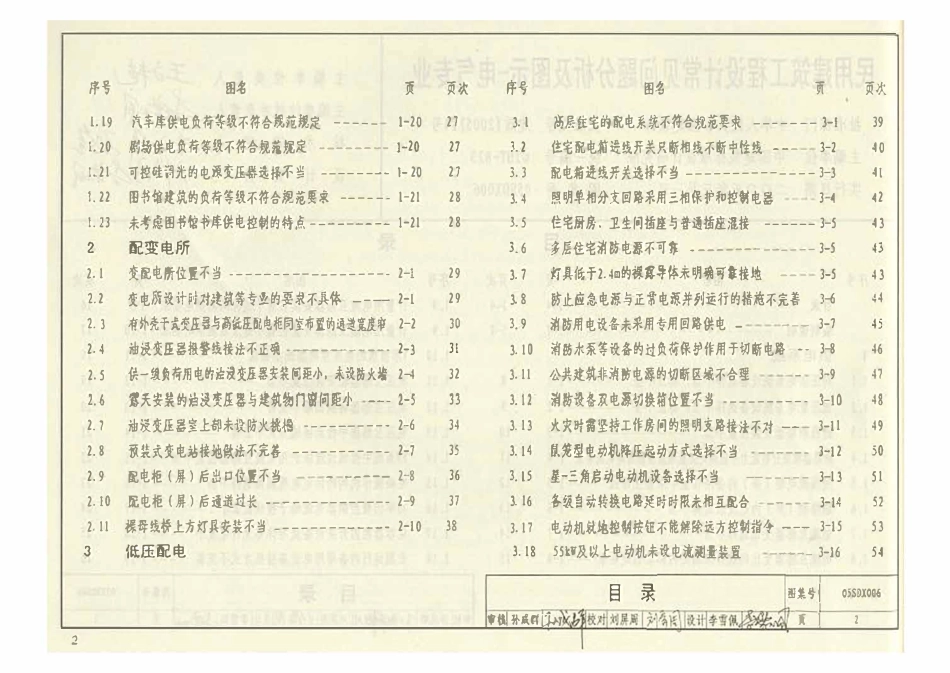 序号 图名 页 页次
1.19 汽车库供电负荷等级不符合规范规定 ------- 1-20 27
1.20 剧场供电负荷等级不符合规范规定 -------- 1-20 27
1.21 可控硅调光的电源变压器选择不当 -------- 1-20 27
1.22 图书馆建筑的负荷等级不符合规范要求 ------ 1-21 28
1.23 未考虑图书馆书库供电控制的特点 -------- 1-21 28
2 配变电所
2.1 变配电所位置不当 ---------------- 2-1 29
2.2 变电所设计时对建筑等专业的要求不具体 ----- 2-1 29
2.3 有外壳干式变压器与高低压配电柜同室布置的通道宽度窄 2-2 30
2.4 油浸变压器报警线接法不正确 ---------- 2-3 31
2.5 供一级负荷用电的油浸变压器安装间距小，未设防火墙 2-4 32
2.6 露天安装的油浸变压器与建筑物门窗间距小 ---- 2-5 33
2.7 油浸变压器室上部未设防火挑檐 --------- 2-6 34
2.8 预装式变电站接地做法不完善 ---------- 2-7 35
2.9 配电柜（屏）后出口位置不当 ---------- 2-8 36
2.10 配电柜（屏）后通道过长 ------------ 2-9 37
2.11 裸母线桥上方灯具安装不当 ----------- 2-10 38
3 低压配电
序号 图名 页 页次
3.1 高层住宅的配电系统不符合规范要求 ------- 3-1 39
3.2 住宅配电箱进线开关只断相线不断中性线 ----- 3-2 40
3.3 配电箱进线开关选择不当 ------------ 3-3 41
3.4 照明单相分支回路采用三相保护和控制电器 ---- 3-4 42
3.5 住宅厨房、卫生间插座与普通插座混接 ------ 3-5 43
3.6 多层住宅消防电源不可靠 ------------ 3-5 43
3.7 灯具低于2.4m的裸露导体未明确可靠接地 ----- 3-5 43
3.8 防止应急电源与正常电源并列运行的措施不完善 3-6 44
3.9 消防用电设备未采用专用回路供电 -------- 3-7 45
3.10 消防水泵等设备的过负荷保护作用于切断电路 -- 3-8 46
3.11 公共建筑非消防电源的切断区域不合理 ------ 3-9 47
3.12 消防设备双电源切换箱位置不当 --------- 3-10 48
3.13 火灾时需坚持工作房间的照明支路接法不对 ---- 3-11 49
3.14 鼠笼型电动机降压起动方式选择不当 ------- 3-12 50
3.15 星-三角启动电动机设备选择不当 -------- 3-13 51
3.16 各级自动转换电路延时时限未相互配合 ------ 3-14 52
3.17 电动机就地控制按钮不能解除远方控制指令 ---- 3-15 53
3.18 55kW及以上电动机未设电流测量装置 ------- 3-16 54
目 录 图集号 05SDX006
审核 孙成群 校对 刘屏周 设计 李雪佩 页 2
2